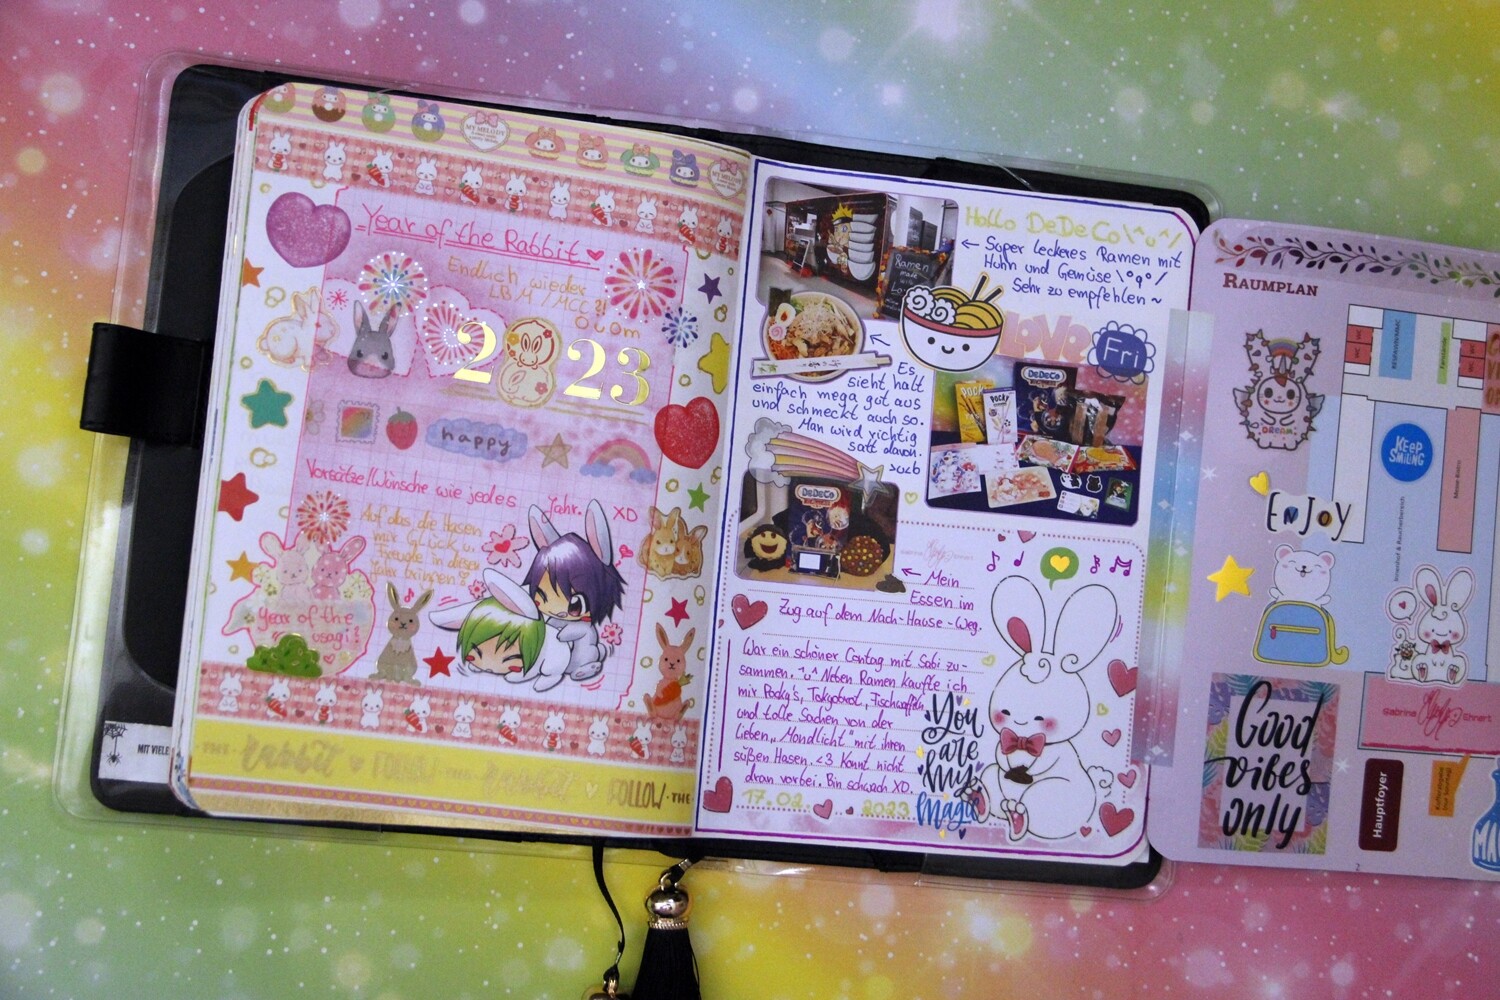 MY MELODY
Year of the Rabbit
Endlich wieder
LBM / MCC?!
OLOM
2023
happy
Vorsätze/Wünsche wie jedes Jahr. XD
Auf das die Hasen
mir Glück u.
Freude in diesem
Jahr bringen
Year of the
usagi!
Rabbit FOLLOW THE Rabbit FOLLOW · THE
MIT VIELE
Hallo DeDeCo \^u^/
← Super leckeres Ramen mit
Huhn und Gemüse \°q°/
Sehr zu empfehlen ~
Ramen
made
LOVE
Fri
Es
sieht halt
einfach mega gut aus
und schmeckt auch so.
Man wird richtig
satt davon.
DeDeCo
POCKY
POCKY
DeDeCo
Sabrina Ehnert
← Mein
Essen im
Zug auf dem Nach-Hause-Weg.
War ein schöner Contag mit Sabi zu-
sammen. ^u^ Neben Ramen kaufte ich
mir Pocky's, Tokyobrot, Fischwaffeln
und tolle Sachen von der
lieben „Mondlicht" mit ihren
süßen Hasen. <3 Kann nicht
dran vorbei. Bin schwach XD.
17.02. 2023
You
are
my
Magic
RAUMPLAN
DREAM
KEEP
SMILING
ENJOY
Good
vibes
only
Sabrina Ehnert
Hauptfoyer